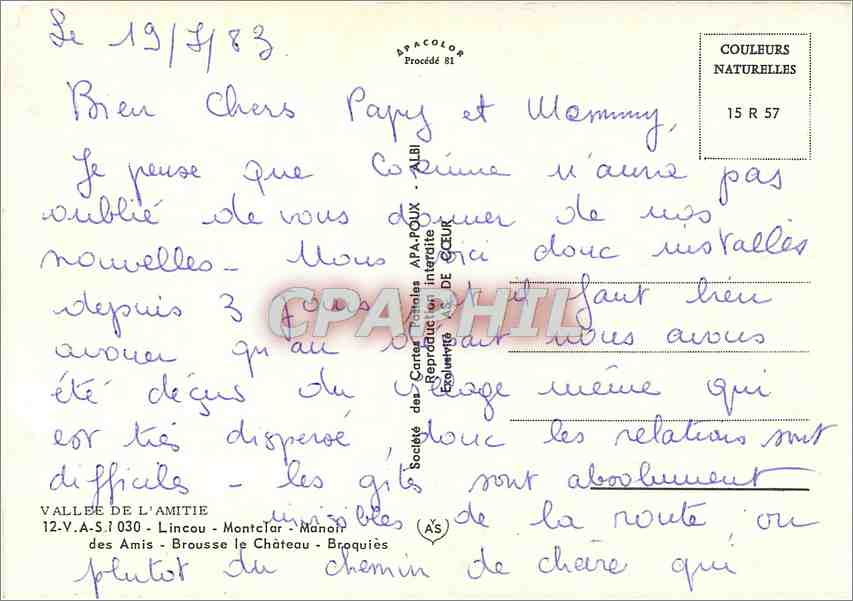 Le 19/7/83
APACOLOR
Procédé 81
COULEURS
NATURELLES
15 R 57
Bien Chers Papy et Mammy,
Je pense que Corinne n'aura pas
oublié de vous donner de nos
nouvelles - Nous voici donc installés
depuis 3 jours et il faut bien
avouer qu'au départ nous avons
été déçus du village même qui
est très dispersé, donc les relations sont
difficiles - les gîtes sont absolument
invisibles de la route, ou
plutot du chemin de chèvre qui
Société des Cartes Postales APA-POUX - ALBI
Reproduction interdite
Exclusivité AS DE CŒUR
CPAPHIL
VALLEE DE L'AMITIE
12-V.A-S.1030 - Lincou - Montclar - Manoir
des Amis - Brousse le Château - Broquiès
AS